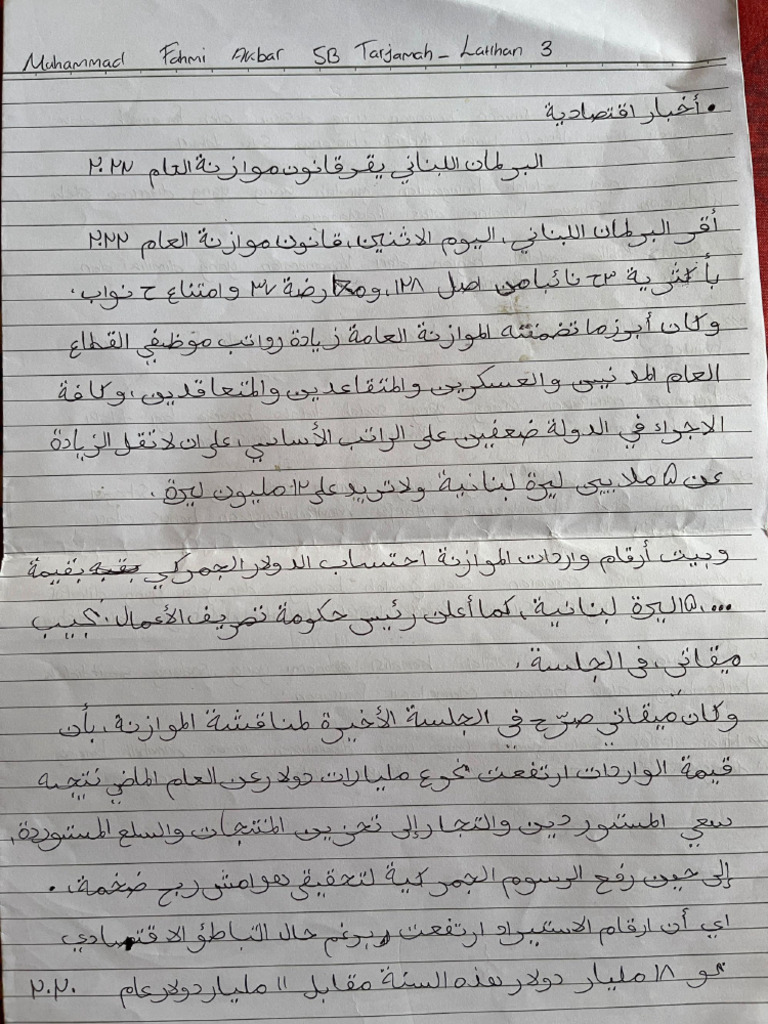 Muhammad Fahmi Akbar 5B Tarjamah - Latihan 3
• أخبار اقتصادية
البرلمان اللبناني يقر قانون موازنة العام ٢٠٢٢
أقر البرلمان اللبناني، اليوم الاثنين، قانون موازنة العام ٢٠٢٢
بأكثرية ٦٣ نائبا من اصل ١٢٨، ومعارضة ٣٧ وامتناع ٦ نواب.
وكان أبرز ما تضمنته الموازنة العامة زيادة رواتب موظفي القطاع
العام المدنيين والعسكريين والمتقاعدين والمتعاقدين، وكافة
الاجراء في الدولة ضعفين على الراتب الأساسي، على ان لا تقل الزيادة
عن ٥ ملايين ليرة لبنانية ولا تزيد على ١٢ مليون ليرة.
وبيت أرقام واردات الموازنة احتساب الدولار الجمركي بقيمة
١٥٠٠٠ ليرة لبنانية، كما أعلن رئيس حكومة تصريف الأعمال. نجيب
ميقاتي، في الجلسة.
وكان ميقاتي صرّح في الجلسة الأخيرة لمناقشة الموازنة، بأن
قيمة الواردات ارتفعت نحو ٤ مليارات دولار عن العام الماضي نتيجه
سعي المستوردين والتجار إلى تخزين المنتجات والسلع المستوردة،
إلى حين رفع الرسوم الجمركية لتحقيق هوامش ربح ضخمة.
اي أن ارقام الاستيراد ارتفعت برغم حال التباطؤ الاقتصادي
نحو ١٨ مليار دولار هذه السنة مقابل ١١ مليار دولار عام ٢٠٢٠